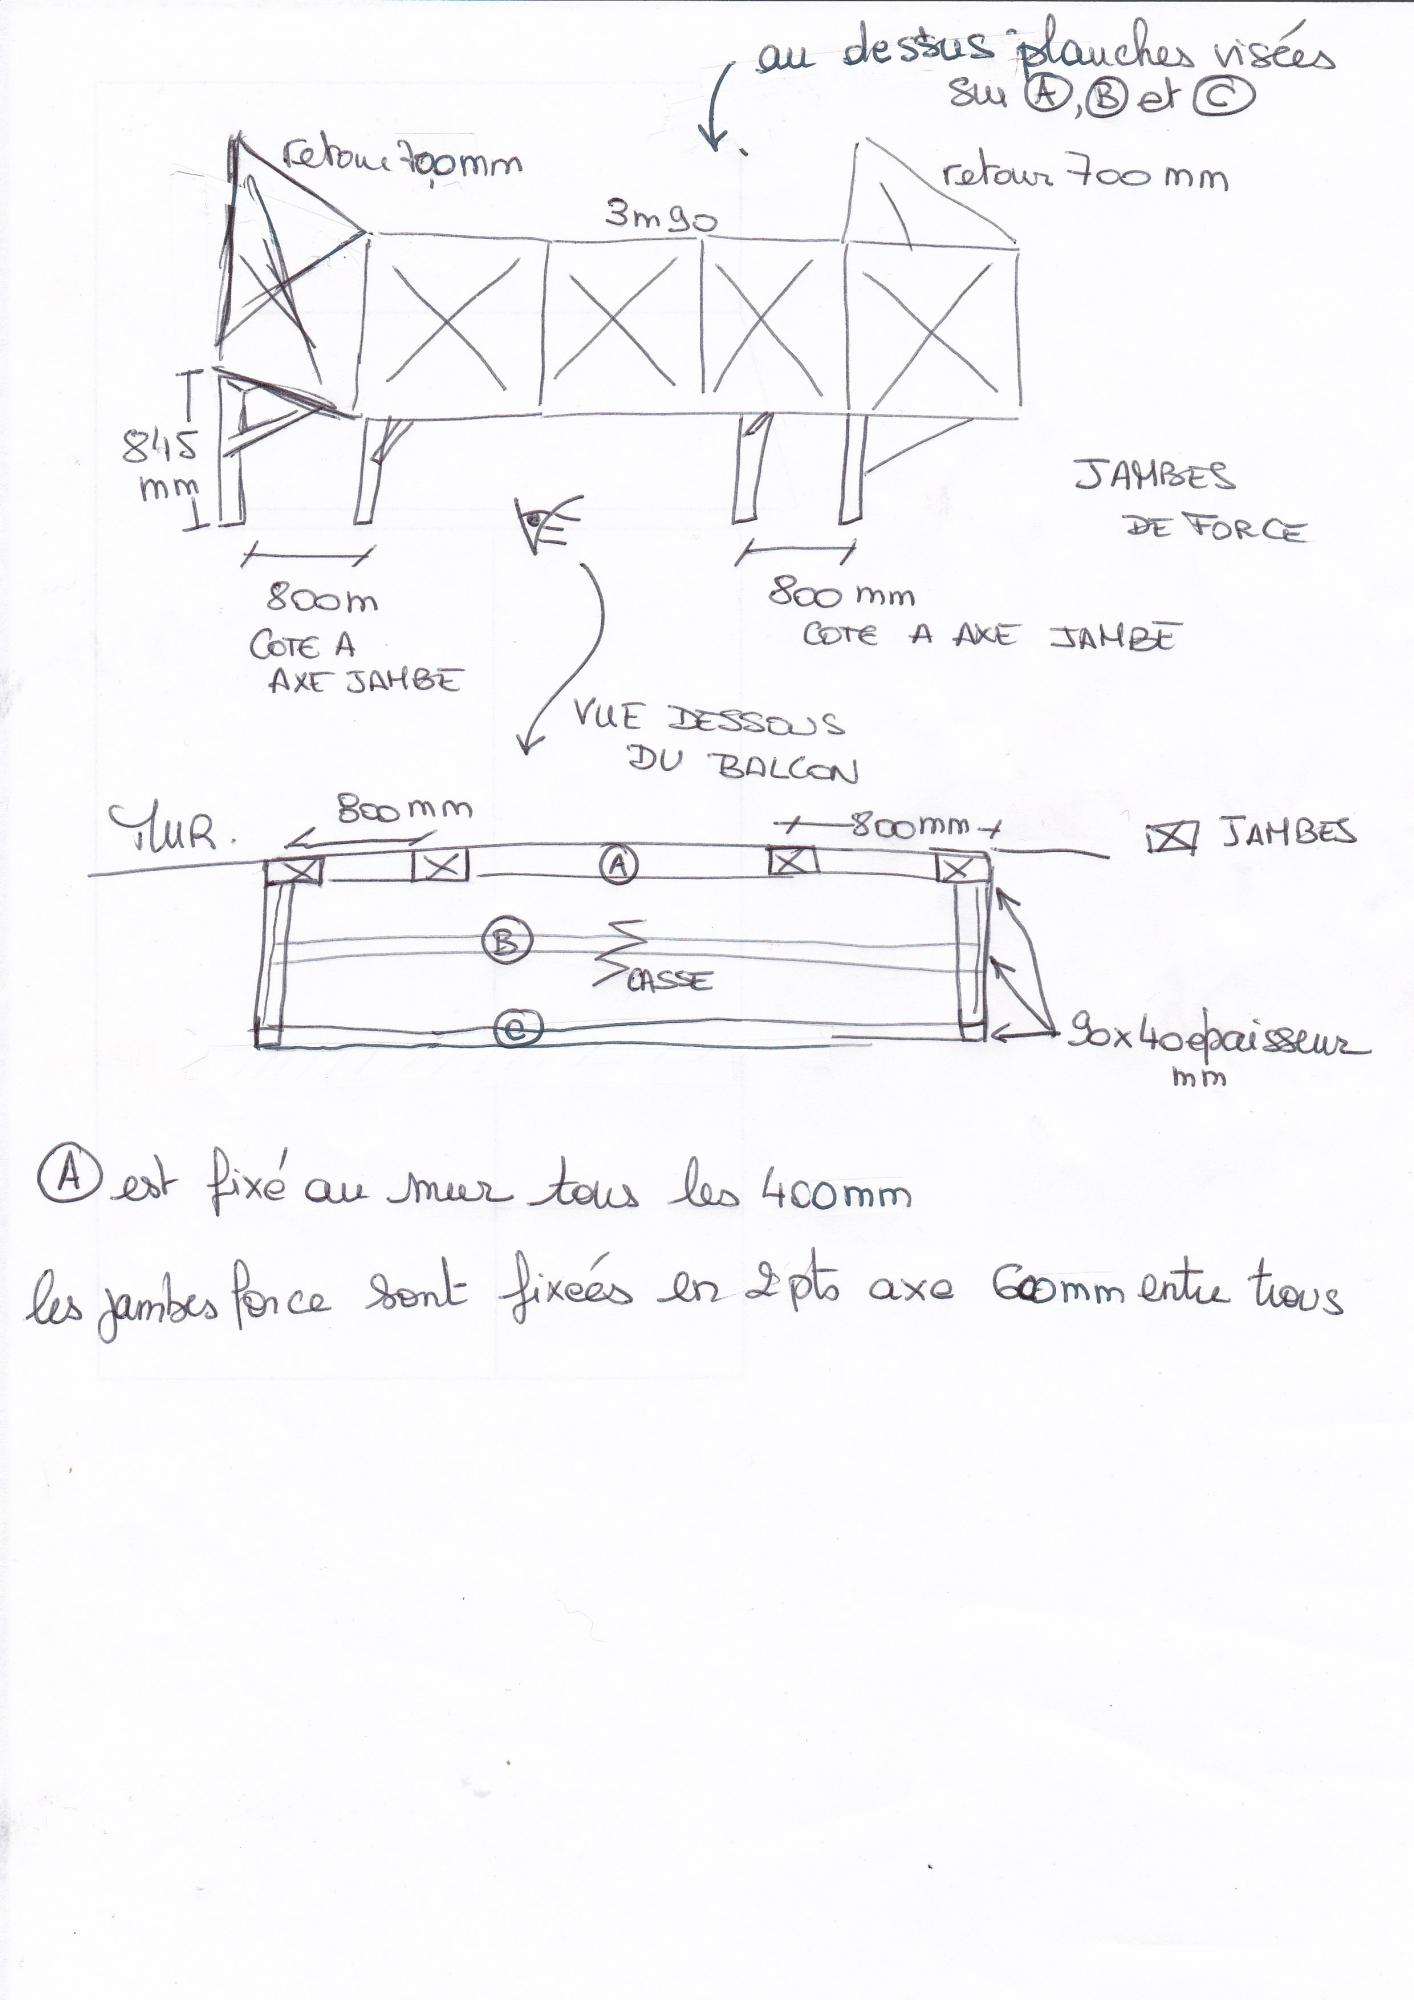 au dessus planches visées
sur A, B et C
retour 700mm
retour 700 mm
3m90
845
mm
JAMBES
DE FORCE
800m
COTE A
AXE JAMBE
800 mm
COTE A AXE JAMBE
VUE DESSOUS
DU BALCON
MUR.
800mm
800mm
JAMBES
A
B
CASSE
C
90x40epaisseur
mm
A est fixé au mur tous les 400mm
les jambes force sont fixées en 2pts axe 600mm entre trous